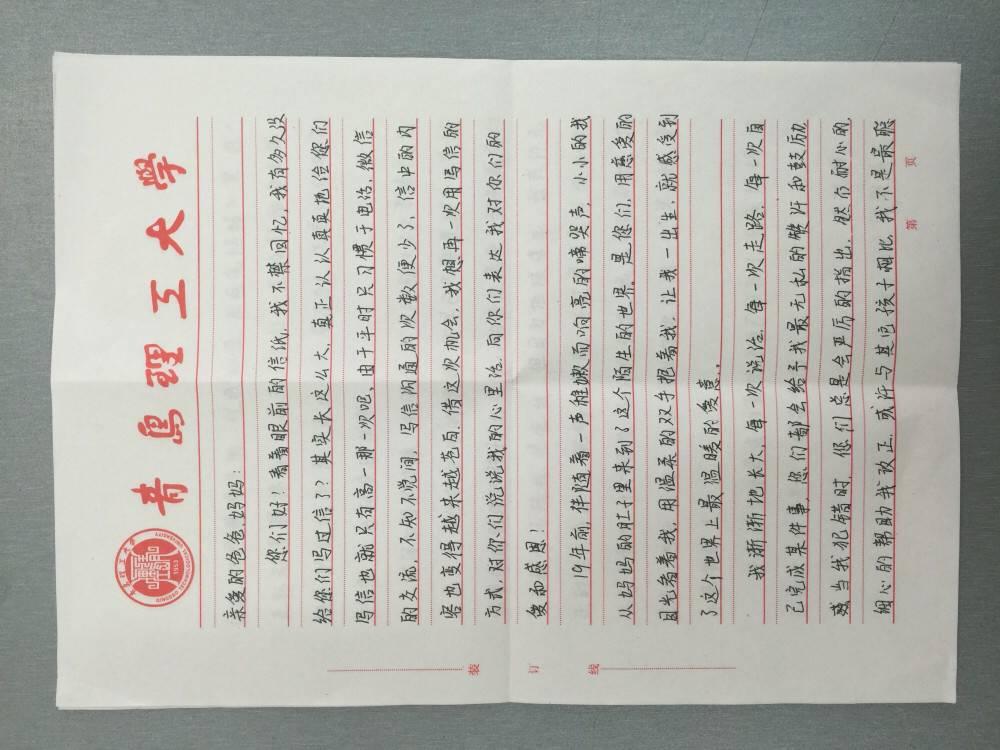 青岛理工大学
亲爱的爸爸,妈妈:
您们好!看着眼前的信纸,我不禁回忆,我有多久没
给您们写过信了?其实长这么大,真正认认真真地给您们
写信也就只有高一那一次吧。由于平时只习惯于电话,微信
的交流,不知不觉间,写信沟通的次数便少了,信中的内
容也变得越来越苍白,借这次机会,我想再一次用写信的
方式,对你们说说我的心里话,向你们表达我对你们的
爱和感恩!
19年前,伴随着一声稚嫩而响亮的啼哭声,小小的我
从妈妈的肚子里来到了这个陌生的世界,是您们,用慈爱的
目光看着我,用温柔的双手抱着我,让我一出生,就感受到
了这个世界上最温暖的爱意。
我渐渐地长大,每一次说话,每一次走路,每一次自
己完成某件事,您们都会给予我最无私的赞许和鼓励
当我犯错时,您们总是会严厉的指出,然后耐心的
细心的帮助我改正,或许与其他孩子相比,我不是最聪
第 页
装 订 线
1953